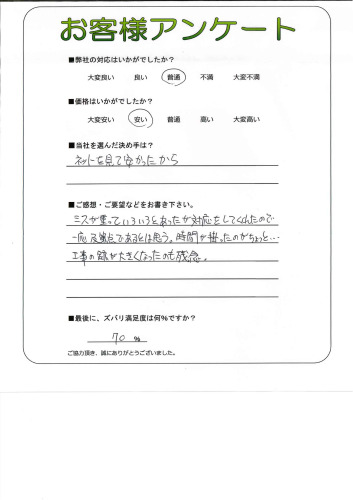 お客様アンケート
■弊社の対応はいかがでしたか?
大変良い 良い 普通 不満 大変不満
■価格はいかがでしたか?
大変安い 安い 普通 高い 大変高い
■当社を選んだ決め手は?
ネットを見て安かったから
■ご感想・ご要望などをお書き下さい。
ミスが重っていろいろとあったが対応をしてくれたので
一応 及第点であるとは思う。時間が掛ったのがちょっと…
工事の額が大きくなったのも残念。
■最後に、ズバリ満足度は何%ですか?
70 %
ご協力頂き、誠にありがとうございました。